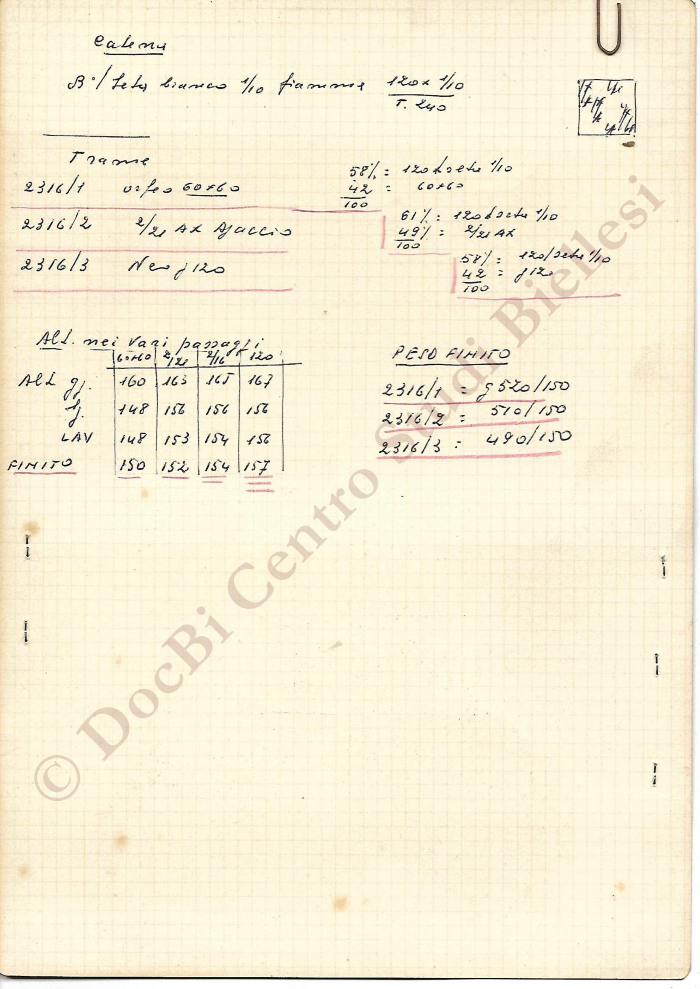 Catena
B°/ Seta bianco 1/10 fiamme 120x 1/10
T. 240
Trame
2316/1 60+60
58% = 120d seta 1/10
42 = 60+60
100
2316/2 2/21 AX Ajaccio
61% = 120d seta 1/10
49% = 2/21 AX
100
2316/3 120
58% = 120/seta 1/10
42 = g120
100
Alt. nei vari passaggi
60+60 2/21 2/16 120
Alt gg. 160 163 165 167
148 156 156 156
LAV 148 153 154 156
FINITO 150 152 154 157
PESO FINITO
2316/1 = g 520/150
2316/2 = 510/150
2316/3 = 490/150
© DocBi Centro Studi Biellesi